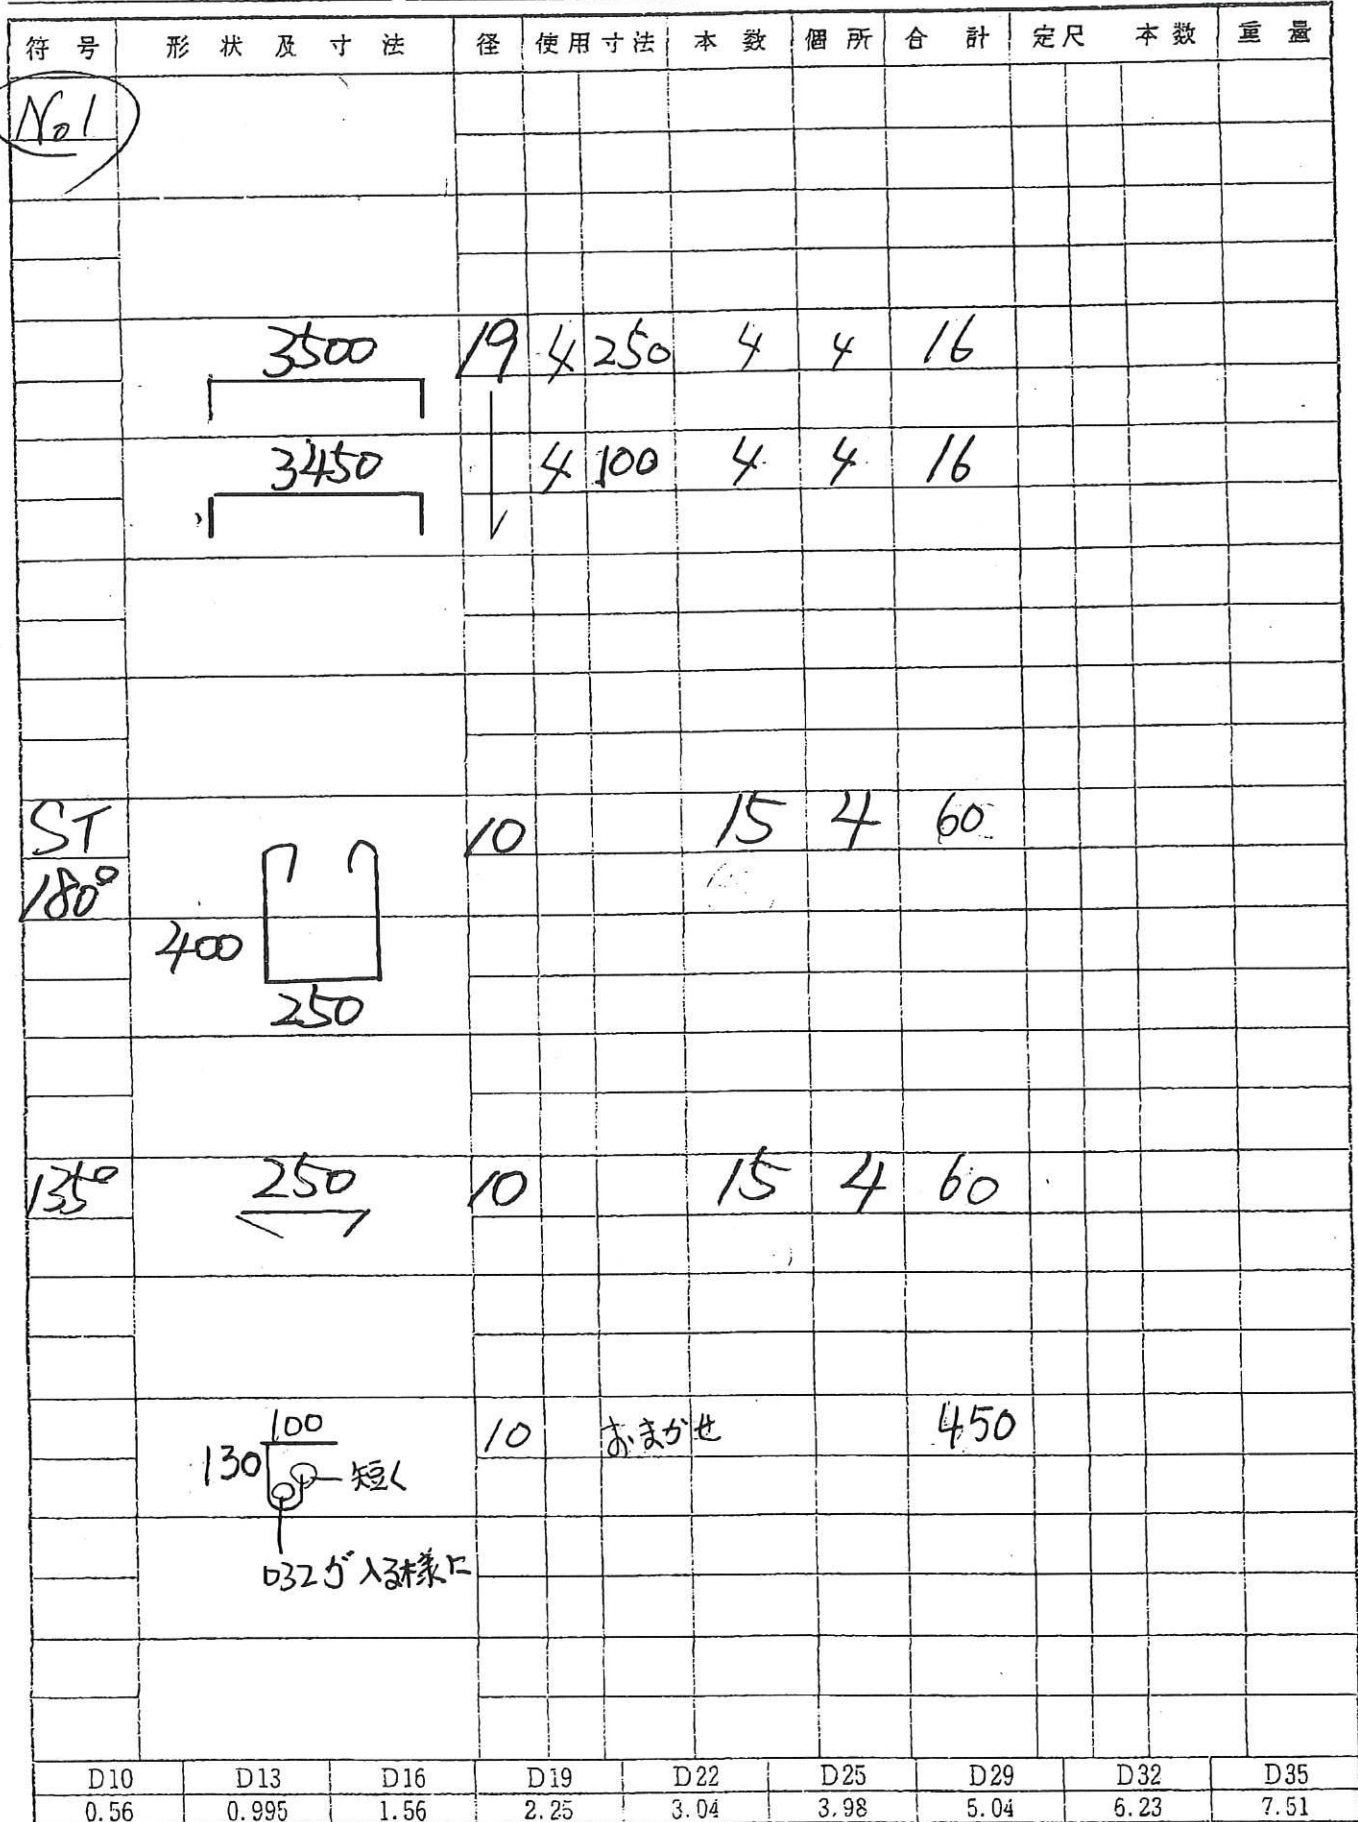 符号 形状及寸法 径 使用寸法 本数 個所 合計 定尺 本数 重量
No1
3500 19 4 250 4 4 16
3450 4 100 4 4 16
ST 10 15 4 60
180°
400
250
135° 250 10 15 4 60
100 10 おまかせ 450
130 短く
D32が入る様に
D10 D13 D16 D19 D22 D25 D29 D32 D35
0.56 0.995 1.56 2.25 3.04 3.98 5.04 6.23 7.51